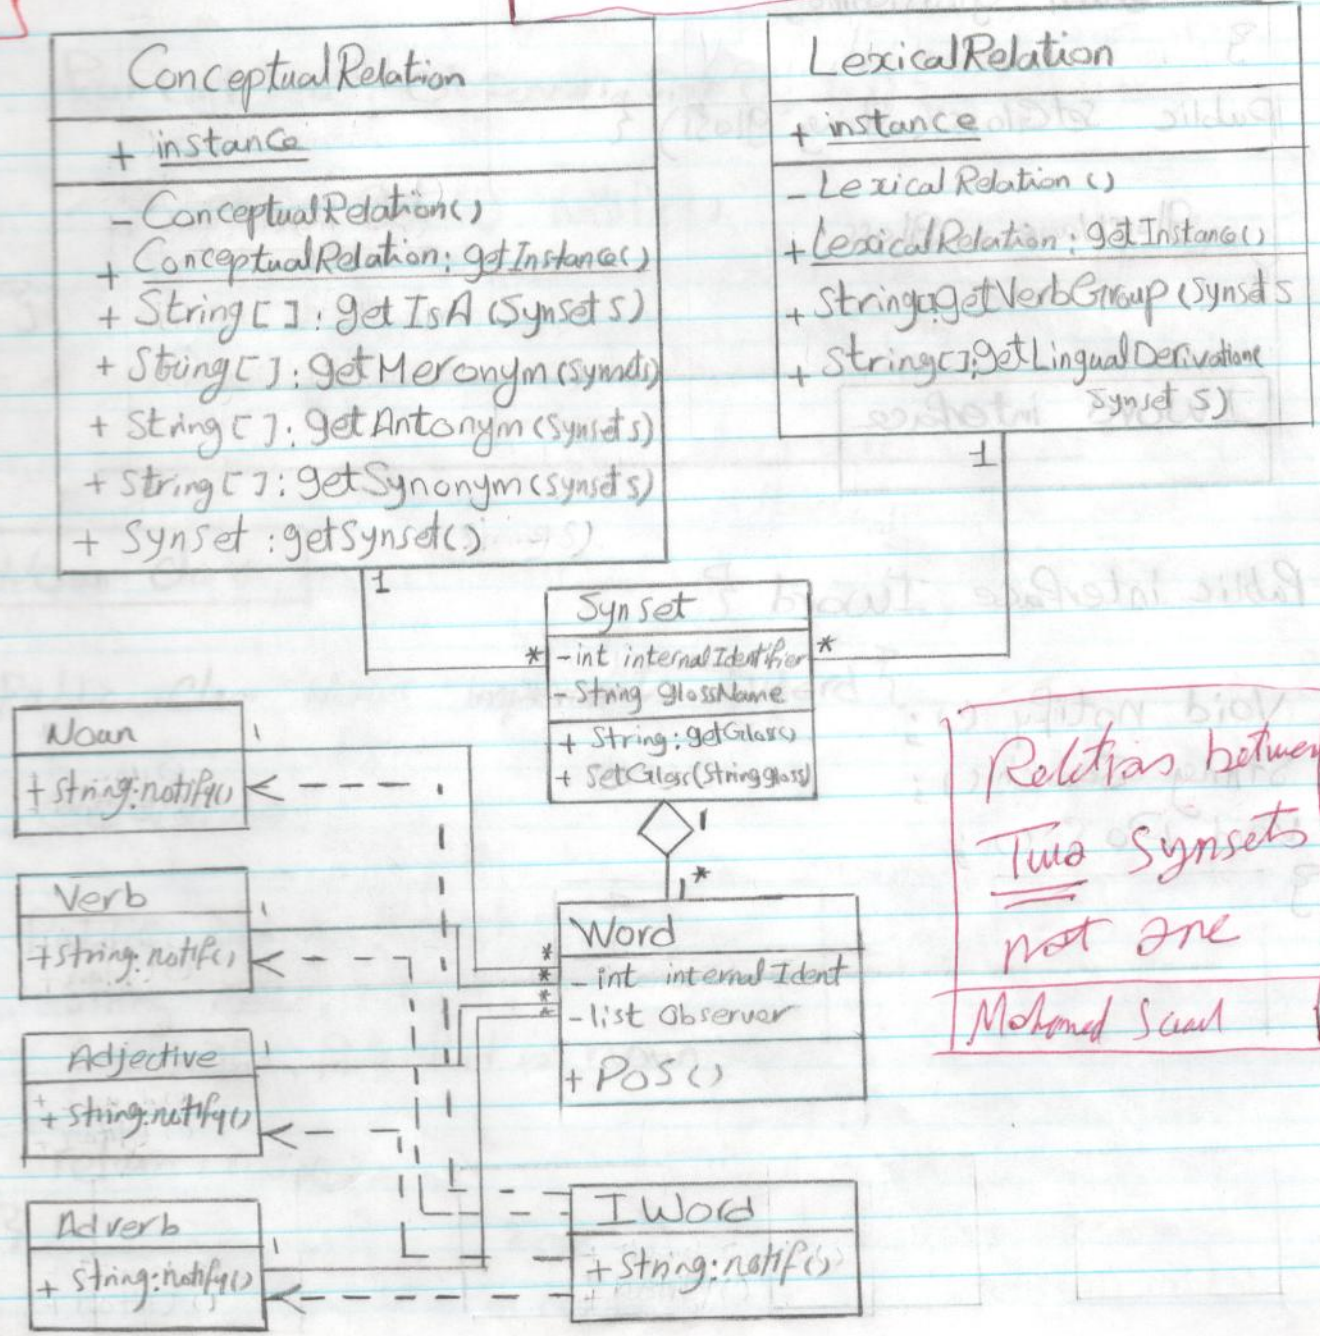 ConceptualRelation
+ instance
- ConceptualRelation()
+ ConceptualRelation: getInstance()
+ String[]: getIsA (Synset s)
+ String[]: getMeronym (Synset s)
+ String[]: getAntonym (Synset s)
+ String[]: getSynonym (Synset s)
+ Synset : getSynset()
1
LexicalRelation
+ instance
- LexicalRelation ()
+ LexicalRelation: getInstance()
+ String[]: getVerbGroup (Synset s
+ String[]: getLingualDerivation(
Synset s)
1
Synset
* - int internalIdentifier *
- String glossName
+ String: getGloss()
+ setGloss(String gloss)
1
*
Noun 1
+ String: notify()
Verb 1
+ String: notify()
Adjective 1
+ String: notify()
Adverb 1
+ String: notify()
Word
* - int internalIdent
*
* - list Observer
*
+ POS()
IWord
+ String: notify()
Relations between
Two Synsets
not one
Mohamed
Public interface IWord {